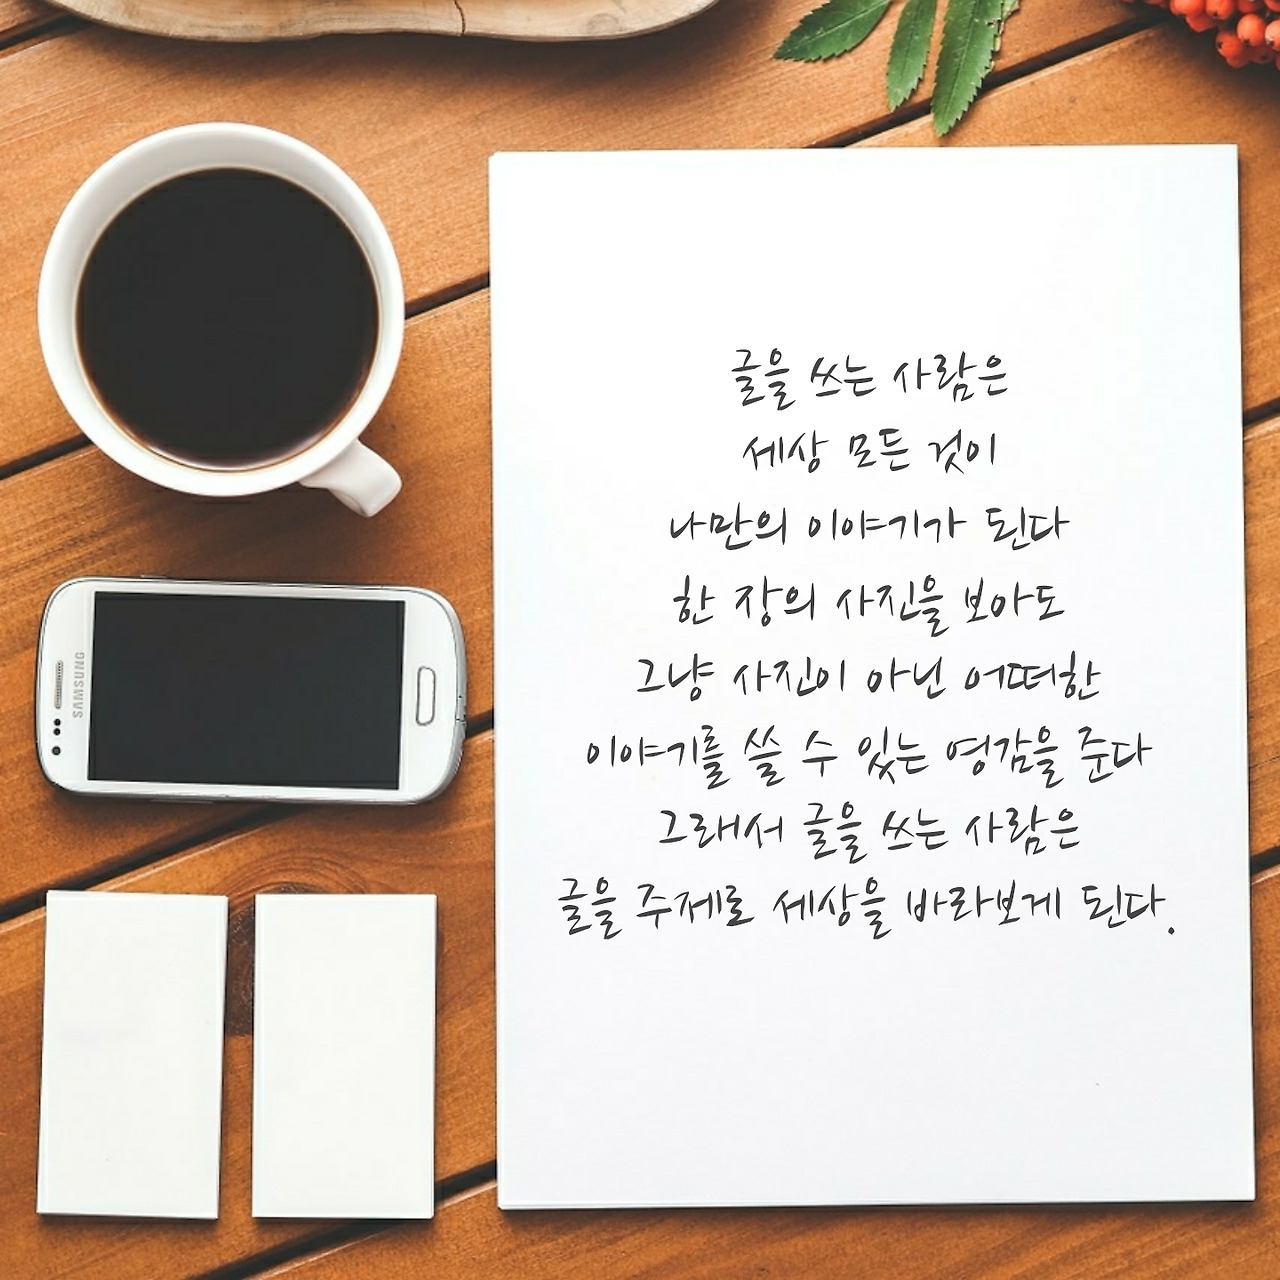 글을 쓰는 사람은
세상 모든 것이
나만의 이야기가 된다
한 장의 사진을 보아도
그냥 사진이 아닌 어떠한
이야기를 쓸 수 있는 영감을 준다
그래서 글을 쓰는 사람은
글을 주제로 세상을 바라보게 된다.
SAMSUNG